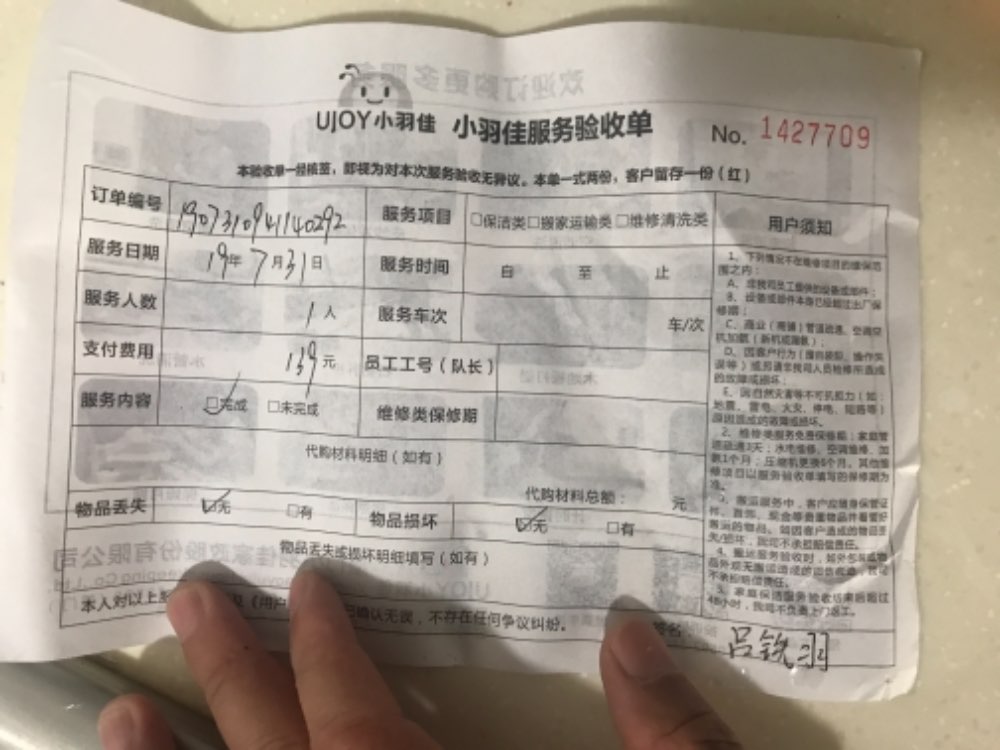 UJOY小羽佳 小羽佳服务验收单 No. 1427709
本验收单一经核签，即视为对本次服务验收无异议。本单一式两份，客户留存一份（红）
订单编号 1907310941140292 服务项目 □保洁类□搬家运输类□维修清洗类
服务日期 19年7月31日 服务时间 自 至 止
服务人数 1人 服务车次 车/次
支付费用 139元 员工工号（队长）
服务内容 □完成 □未完成 维修类保修期
代购材料明细（如有）
代购材料总额： 元
物品丢失 □无 □有 物品损坏 □无 □有
物品丢失或损坏明细填写（如有）
本人对以上 《用户 已确认无误，不存在任何争议纠纷。 签名 吕铁羽
用户须知
1、下列情况不在维修项目的维保范
围之内：
A、非我司员工提供的设备或部件；
B、设备或部件本身已经超过出厂保
修期；
C、商业（商铺）管道疏通、空调空
机加氨（新机或漏氨）；
D、因客户行为（擅自装卸、操作失
误等）或另请非我司人员检修所造成
的故障或损坏；
E、因自然灾害等不可抗拒力（如：
地震、雷电、火灾、停电、短路等）
原因造成的故障或损坏。
2、维修类服务免费保修期：家庭管
道疏通3天；水电维修、空调维修、加
氨1个月；压缩机更换6个月。其他维
修项目以服务验收单填写的保修期为
准。
3、搬运服务中，客户应随身保管证
件、首饰、现金等贵重物品并看管好
客运的物品，如因客户造成的物品丢
失/损坏，我司不承担赔偿责任。
4、搬运服务验收时，如外包装或物
品外观无搬运造成的
不承担赔偿责任。
5、家庭保洁服务验收结束后超过
48小时，我司不负责上门返工。